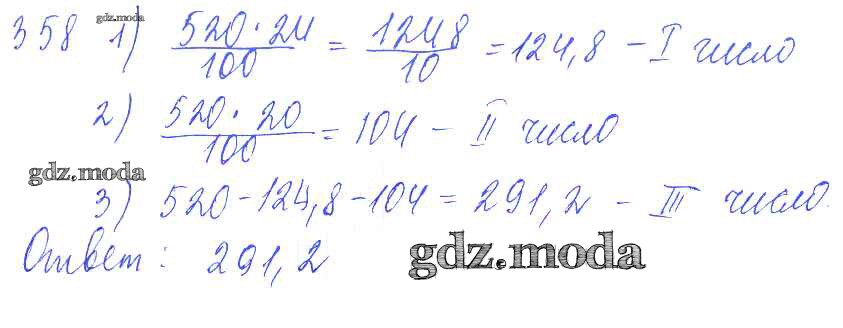 gdz.moda
358 1) 520·24/100 = 1248/10 = 124,8 – I число
2) 520·20/100 = 104 – II число
gdz.moda
3) 520-124,8-104 = 291,2 – III число.
Ответ: 291,2
gdz.moda